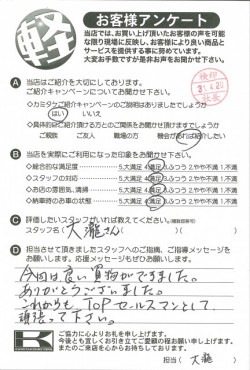 軽
お客様アンケート
当店では、お買い上げ頂いたお客様の声を可能
な限り現場に反映し、お客様により良い商品と
サービスを提供する事に努めています。
大変お手数ですが是非お声をお聞かせ下さい。
A 当店はご紹介を大切にしております。
ご紹介キャンペーンについてお聞かせ下さい。
・カミタケご紹介キャンペーンのご説明はありましたでしょうか
はい いいえ
・具体的にご紹介頂ける方とのご関係をお聞かせ頂けますでしょうか
ご親族 ご友人 職場の方 機会があれば紹介したい
B 当店を実際にご利用になった印象をお聞かせ下さい。
◇総合的な満足度 5.大満足 4.満足 3.ふつう 2.やや不満 1.不満
◇スタッフの対応 5.大満足 4.満足 3.ふつう 2.やや不満 1.不満
◇お店の雰囲気、清掃 5.大満足 4.満足 3.ふつう 2.やや不満 1.不満
◇納車時のお車の状態 5.大満足 4.満足 3.ふつう 2.やや不満 1.不満
C 評価したいスタッフがいれば教えてください。(複数回答可)
スタッフ名( 大瀧さん )
D 担当させて頂きましたスタッフへのご指摘、ご指導メッセージを
お願いします。応援メッセージもぜひお願いします。
今回は良い買物ができました。
ありがとうございました。
これからも、TOPセールスマンとして、
頑張って下さい。
ご協力に心よりお礼を申し上げます。
今後とも宜しくお引き立てご愛顧の程お願い申し上げます。
またのご来店を心からお待ちしております。
担当( 大瀧 )